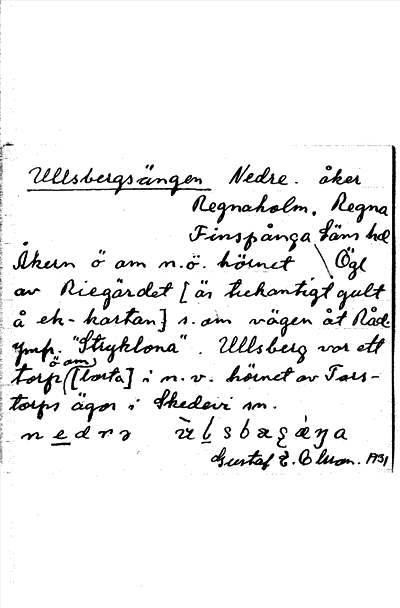 Ullsbergsängen Nedre. åker
Regnaholm, Regna
Finspånga läns hd
Åkern ö om n.ö. hörnet Ögl
av Riegärdet [är trekantigt gult
å ek-kartan] s. om vägen åt Råd-
"Stryklona". Ullsberg var ett
ö om
torp ([borta] i n.v. hörnet av Tors-
torps ägor i Skedevi sn.
Gustaf E. Olson. 1931